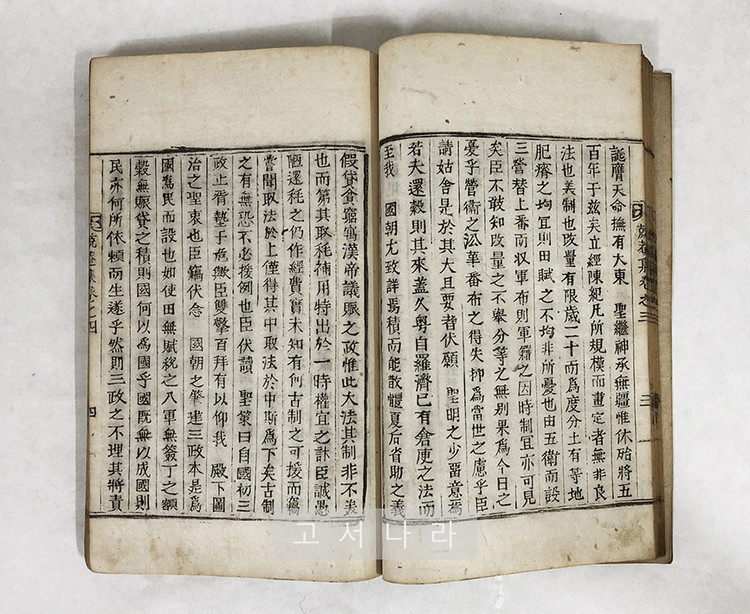 誕膺天命撫有大東 聖繼神承無疆惟休殆將五
百年于玆矣立經陳紀凡所規模而畫定者無非良
法也美制也改量有限歲二十而爲度分土有等地
肥瘠之均宜則田賦之不均非所憂也由五衛而設
三營替上番而收軍布則軍籍之因時制宜亦可見
矣臣不敢知改量之不擧分等之無別果爲今日之
憂乎營衛之沿革番布之得失抑爲當世之慮乎臣
請姑舍是於其大且要者伏願 聖明之少留意焉
若夫還穀則其來盖久粤自羅濟已有倉庾之法而
至我 國朝尤致詳焉積而能散體夏后省助之義
卷之三
三
假貸貧窮寓漢帝議賑之政惟此大法其制非不美
也而第其取耗補用特出於一時權宜之計臣誠愚
陋還耗之仍作經費實未知有何古制之可援而竊
嘗聞取法於上僅得其中取法於中斯爲下矣古制
之有無恐不必援例也臣伏讀 聖策曰自國初三
政止胥墊乎危歟臣雙擎百拜有以仰我 殿下圖
治之聖衷也臣竊伏念 國朝之肇建三政本是爲
國爲民而設也如使田無賦稅之入軍無簽丁之額
穀無賑貸之積則國何以爲國乎國旣無以成國則
民亦何所依賴而生遂乎然則三政之不理其將責
卷之四
四
고서나라